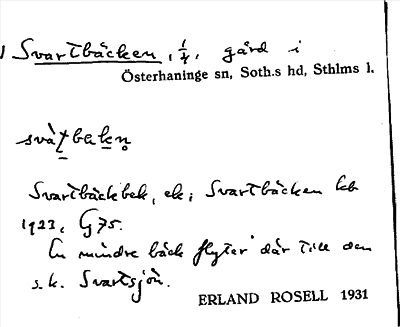 Svartbäcken, 1/4, gård i
Österhaninge sn, Soth.s hd, Sthlms l.
Svartbäckbek, ek; Svartbäcken kb
1923, G75.
En mindre bäck flyter där till den
s.k. Svartsjön.
ERLAND ROSELL 1931